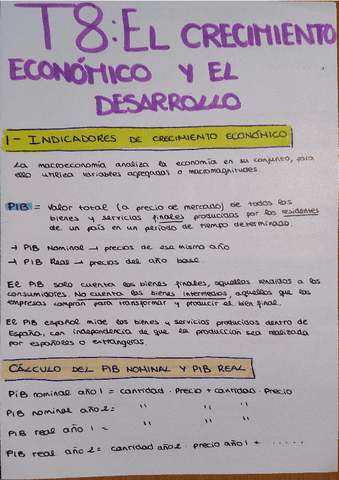 T8: EL CRECIMIENTO
ECONÓMICO Y EL
DESARROLLO
1 - INDICADORES DE CRECIMIENTO ECONÓMICO
La macroeconomía analiza la economía en su conjunto, para
ello utiliza variables agregadas o macromagnitudes.
PIB = Valor total (a precio de mercado) de todos los
bienes y servicios finales producidos por los residentes
de un país en un período de tiempo determinado.
→ PIB Nominal → precios de ese mismo año
→ PIB Real → precios del año base.
El PIB solo cuenta los bienes finales, aquellos vendidos a los
consumidores. No cuenta los bienes intermedios, aquellos que las
empresas compran para transformar y producir el bien final.
El PIB español mide los bienes y servicios producidos dentro de
España, con independencia de que la producción sea realizada
por españoles o extranjeros.
CÁLCULO DEL PIB NOMINAL Y PIB REAL
PIB nominal año 1 = cantidad · precio + cantidad · precio
PIB nominal año 2 = " " "
PIB real año 1 = " " "
PIB real año 2 = cantidad año 2 · precio año 1 + ......